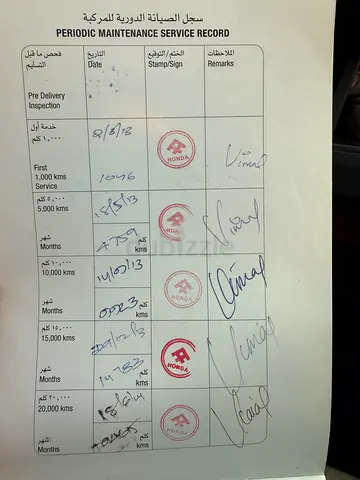 سجل الصيانة الدورية للمركبة
PERIODIC MAINTENANCE SERVICE RECORD
فحص ما قبل التسليم
التاريخ
Date
الختم/التوقيع
Stamp/Sign
الملاحظات
Remarks
Pre Delivery
Inspection
خدمة أول
١,٠٠٠ كلم
First
1,000 kms
Service
1046
HONDA
Vimal
٥,٠٠٠ كلم
5,000 kms
18/5/13
شهر
Months
4759
كلم
kms
Vimal
dubizzle
١٠,٠٠٠ كلم
10,000 kms
14/07/13
شهر
Months
كلم
kms
HONDA
Vimal
١٥,٠٠٠ كلم
15,000 kms
شهر
Months
14783
كلم
kms
HONDA
Vimal
٢٠,٠٠٠ كلم
20,000 kms
18/6/14
شهر
Months
كلم
kms
HONDA